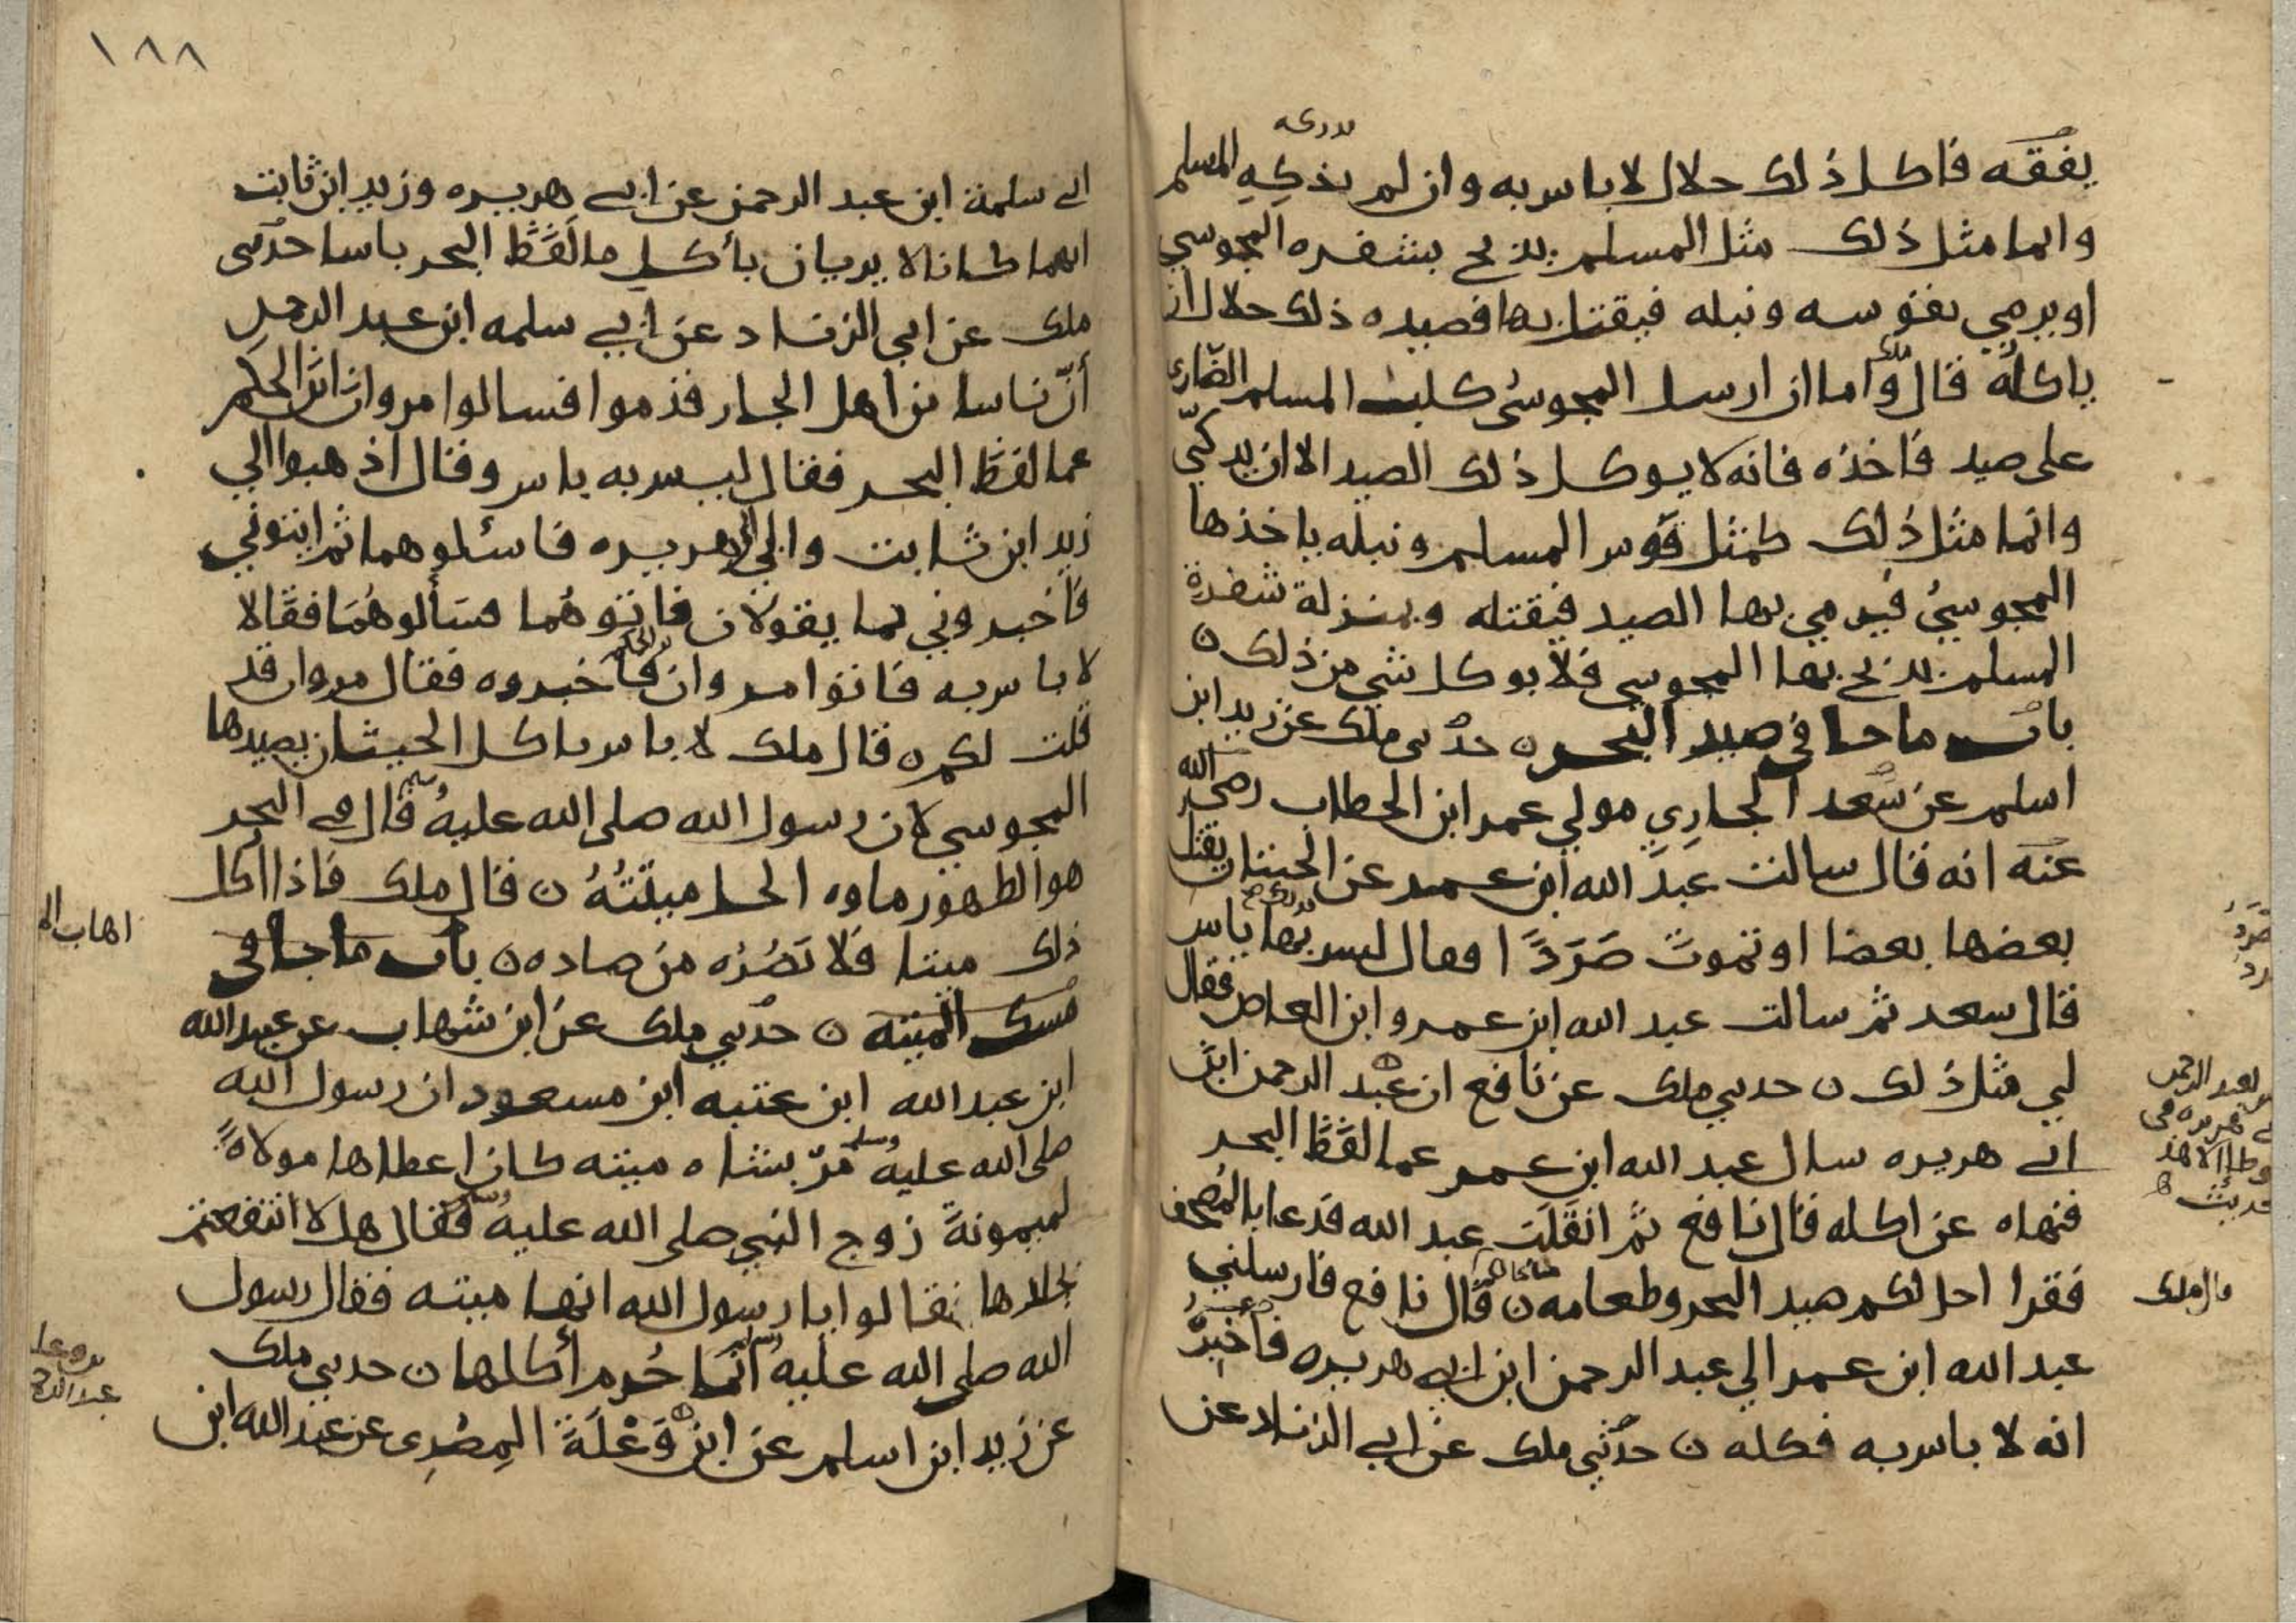 يفقه فاكل ذلك حلال لا باس به وان لم يذكه المسلم
وانما مثل ذلك مثل المسلم يذبح بشفره المجوسي
او يرمي بقوسه ونبله فيقتل بها فصيده ذلك حلال ان
ياكله قال ملك واما ان ارسل المجوسي كلب المسلم الضاري
على صيد فاخذه فانه لا يوكل ذلك الصيد الا ان يذكي
وانما مثل ذلك كمثل قوس المسلم ونبله ياخذها
المجوسي فيرمي بها الصيد فيقتله وبمنزلة شفرة
المسلم يذبح بها المجوسي فلا يوكل شي من ذلك ن
باب ما جا في صيد البحر ن حدثني ملك عن زيد ابن
اسلم عن سعد الجاري مولي عمر ابن الخطاب رضي الله
عنه انه قال سالت عبد الله ابن عمر عن الحيتان يقتل
بعضها بعضا او تموت صَرَدًا فقال ليس بها باس
قال سعد ثم سالت عبد الله ابن عمرو ابن العاص فقال
لي مثل ذلك ن حدثني ملك عن نافع ان عبد الرحمن ابن
ابي هريره سال عبد الله ابن عمر عما لفَظَ البحر
فنهاه عن اكله قال نافع ثم انقلَبَ عبد الله فدعا بالمصحف
فقرا احل لكم صيد البحر وطعامه ن قال نافع فارسلني
عبد الله ابن عمر الي عبد الرحمن ابن ابي هريره فاخبره
انه لا باس به فكله ن حدثني ملك عن ابي الزناد عن
قال ملك
١٨٨
ابي سلمة ابن عبد الرحمن عن ابي هريره وزيد ابن ثابت
انهما كانا لا يريان باكل ما لفَظَ البحر باسا حدثني
ملك عن ابي الزناد عن ابي سلمه ابن عبد الرحمن
أنّ ناسا من اهل الجار قدموا فسالوا مروان ابن الحكم
عما لفظ البحر فقال ليس به باس وقال اذهبوا الي
زيد ابن ثابت والي ابي هريره فاسئلوهما ثم ايتوني
فاخبروني بما يقولان فاتوهُما فسَألوهُمَا فقالا
لا باس به فاتوا مروان فاخبروه فقال مروان قد
قلت لكم ن قال ملك لا باس باكل الحيتان يصيدها
المجوسي لان رسول الله صلى الله عليه وسلم قال في البحر
هو الطهور ماوه الحل ميتَتُهُ ن قال ملك فاذا اكل
ذلك ميتا فلا تضُرُه من صاده ن باب ما جا في
مسك الميته ن حدثني ملك عن ابن شهاب عن عبيد الله
ابن عبد الله ابن عتبه ابن مسعود ان رسول الله
صلى الله عليه وسلم مرّ بشاه ميته كان اعطاها مولاةً
لميمونة زوج النبي صلى الله عليه وسلم فقال هلا انتفعتم
بجلدها فقالوا يا رسول الله انها ميته فقال رسول
الله صلى الله عليه وسلم انما حُرم أكلها ن حدثني ملك
عن زيد ابن اسلم عن ابن وَعْلَةَ المِصْرِى عن عبد الله ابن